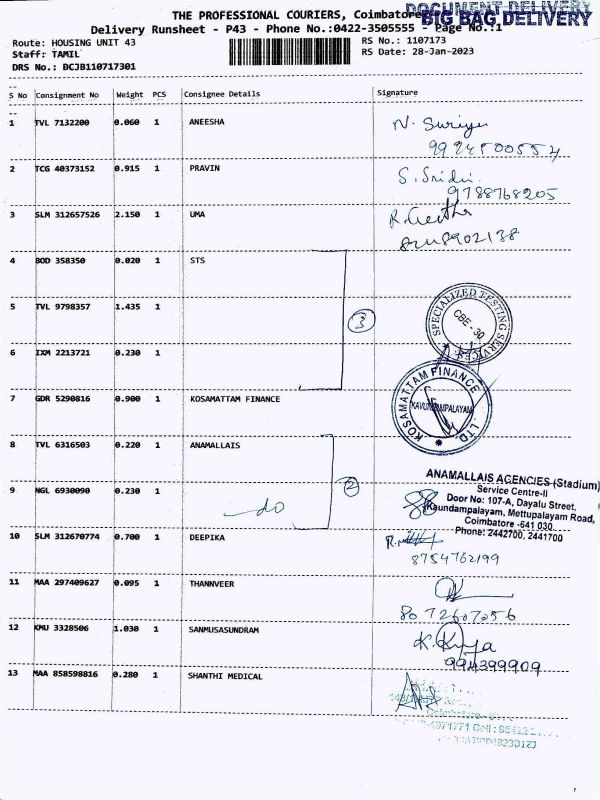 DOCUMENT DELIVERY
THE PROFESSIONAL COURIERS, Coimbatore
BIG BAG DELIVERY
Delivery Runsheet - P43 - Phone No.:0422-3505555 - Page No.:1
Route: HOUSING UNIT 43
RS No.: 1107173
Staff: TAMIL
RS Date: 28-Jan-2023
DRS No.: DCJB110717301
S No Consignment No Weight PCS Consignee Details Signature
1 TVL 7132200 0.060 1 ANEESHA N. Suriya
2 TCG 40373152 0.915 1 PRAVIN S. Sridu
9788768205
3 SLM 312657526 2.150 1 UMA R. Geetha
4 BOD 358350 0.020 1 STS
5 TVL 9798357 1.435 1 3
SPECIALIZED TESTING SERVICE
CBE - 30
6 IXM 2213721 0.230 1
7 GDR 5290816 0.900 1 KOSAMATTAM FINANCE
KOSAMATTAM FINANCE LTD
KAVUNDAMPALAYAM
8 TVL 6316503 0.220 1 ANAMALLAIS
9 NGL 6930090 0.230 1 do 2
ANAMALLAIS AGENCIES (Stadium)
Service Centre-II
Door No: 107-A, Dayalu Street,
Kaundampalayam, Mettupalayam Road,
Coimbatore -641 030
Phone: 2442700, 2441700
10 SLM 312670774 0.700 1 DEEPIKA
8754762199
11 MAA 297409627 0.095 1 THANNVEER
80 72607056
12 KMU 3328506 1.030 1 SANMUSASUNDRAM
994399909
13 MAA 858598816 0.280 1 SHANTHI MEDICAL